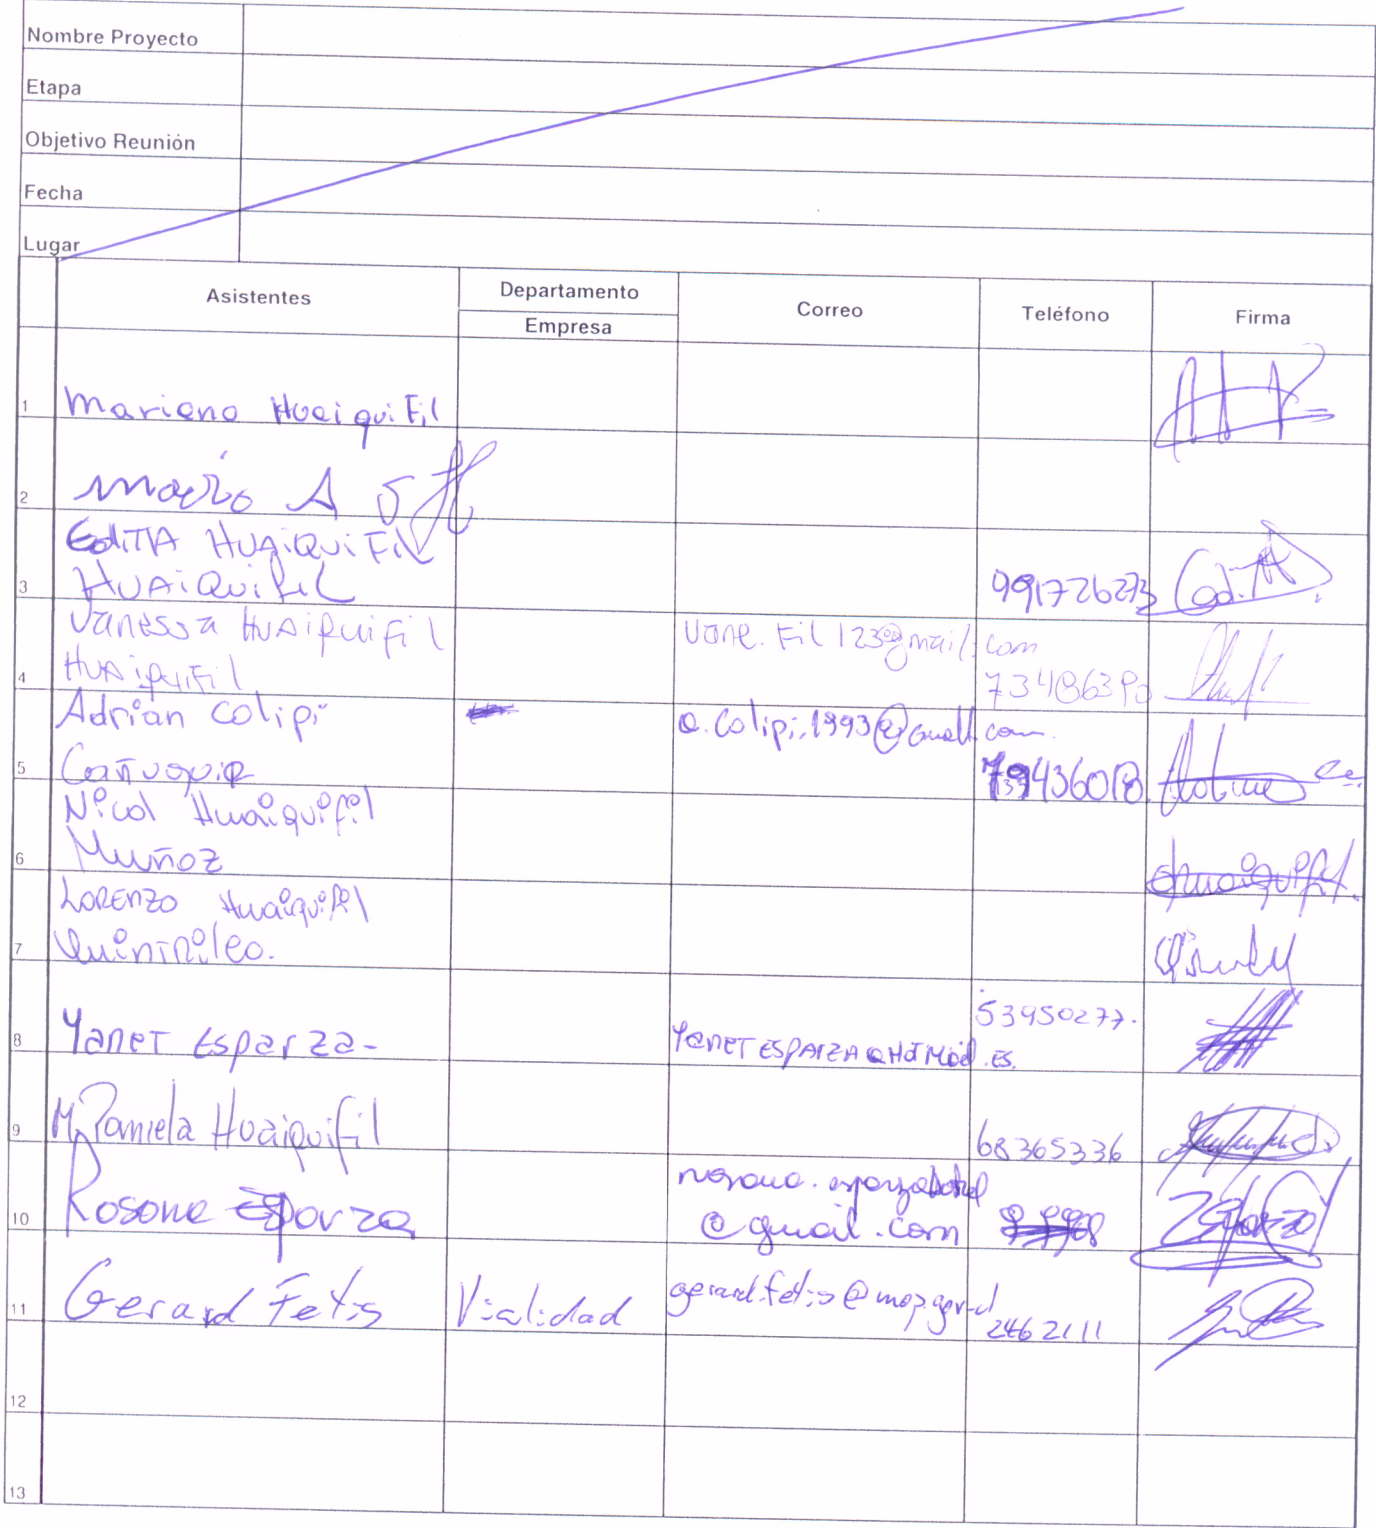 Nombre Proyecto
Etapa
Objetivo Reunión
Fecha
Lugar
Asistentes Departamento Correo Teléfono Firma
Empresa
1 Mariano Huaiquifil
2 A
3 EditA HuaiQuiFil
HuAiQuifil 991726273
4 Vanessa HuAiquifil Vane.Fil123@gmail.com
HuAiquiFil 73486390
5 Adrian Colipi a.colipi.1993@gmail.com
79436018
6 Nicol Huaiquifil
Muñoz
7 LORENZO Huaiquifil
Quintrileo.
8 Yanet Esparza- 53950277.
YaneT ESPARZA@HotMail.ES.
9 M. Daniela Huaiquifil 68365336
10 Rosana Esparza
@gmail.com
11 Gerard Fetis Vialidad gerard.fetis@mop.gov.cl 2462111
12
13